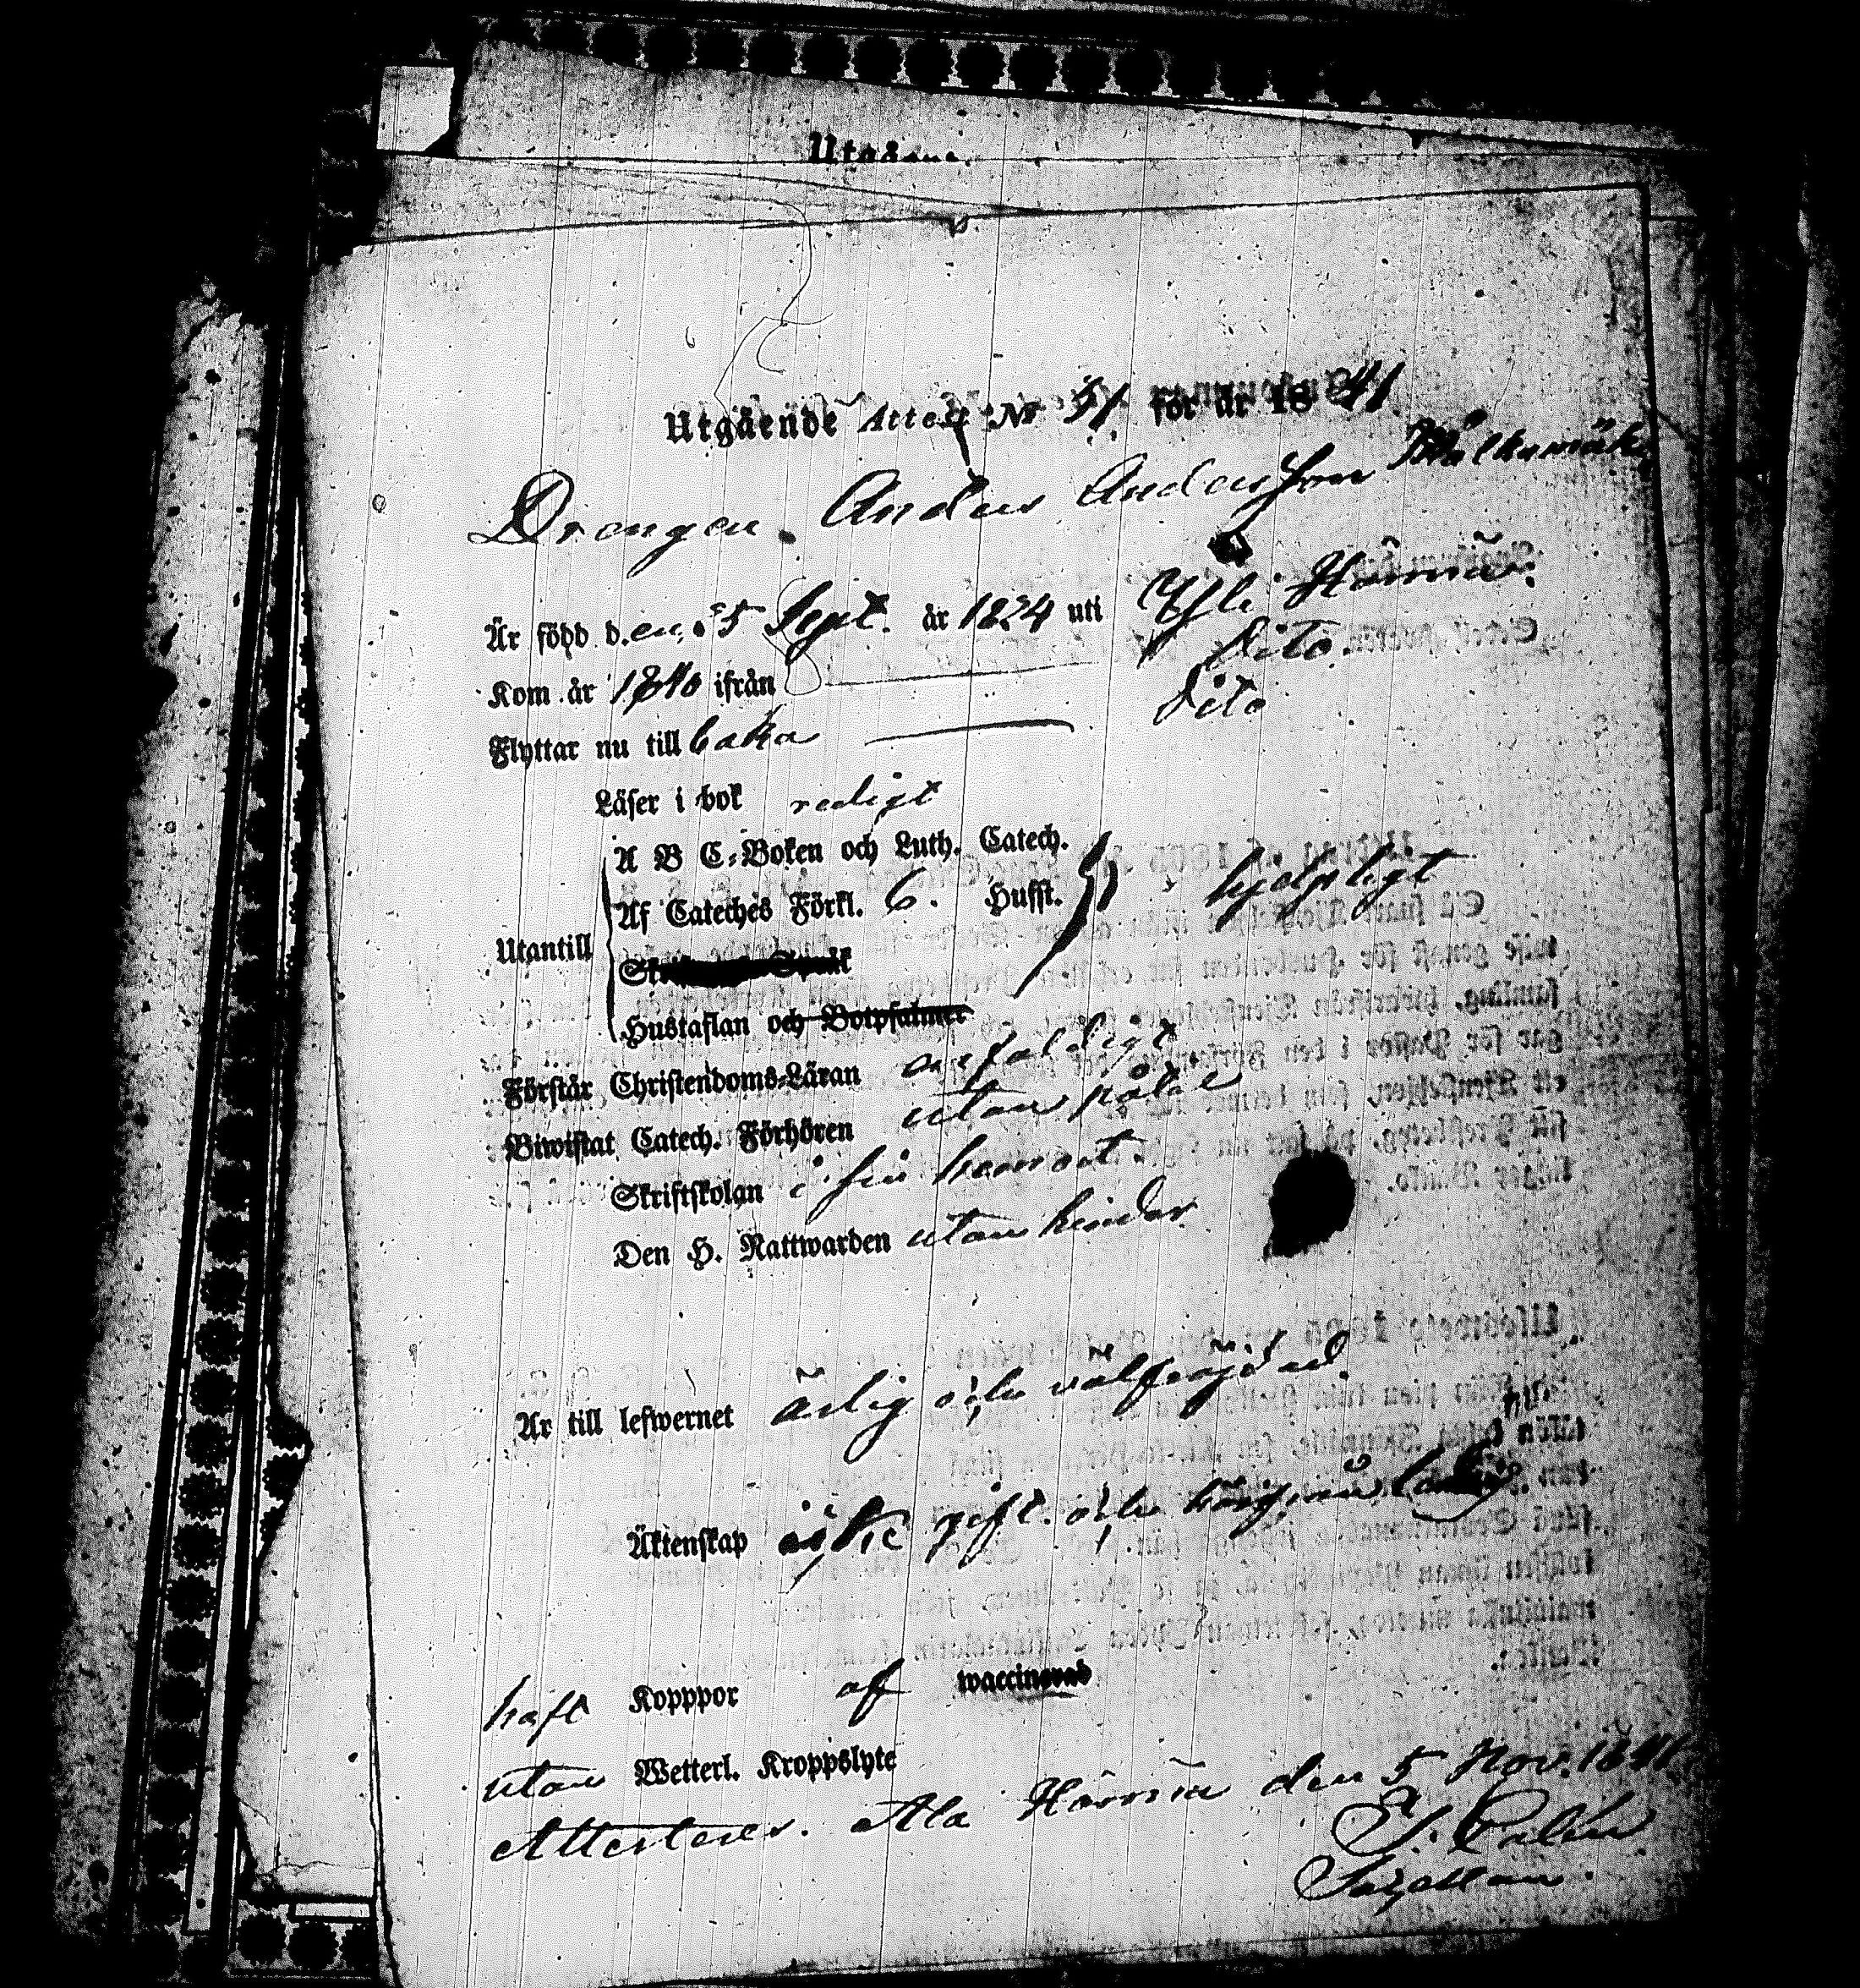 Utgående Attest No 51 för år 1841.
Drengen Anders Andersson
Är född d.en 5 Sept. år 1824 uti Yli Härmä.
Kom år 1840 ifrån Dito.
Flyttar nu till baka Dito
Läser i bok redigt
A B C-Boken och Luth. Catech.
Af Cateches Förkl. 6. Hufst. hjelpligt
Utantill
Hustaflan och Botpsalmer
Förstår Christendoms-Läran enfaldigt
Biwistat Catech. Förhören utan påtal
Skriftskolan i sin hemort.
Den H. Nattwarden utan hinder
Är till lefwernet ärlig och välfräjdad.
Äktenskap icke gift. och nu ledig.
haft Kopppor af waccinerad
utan Wetterl. Kroppslyte
Attesteres. Ala Härmä den 5 Nov. 1841